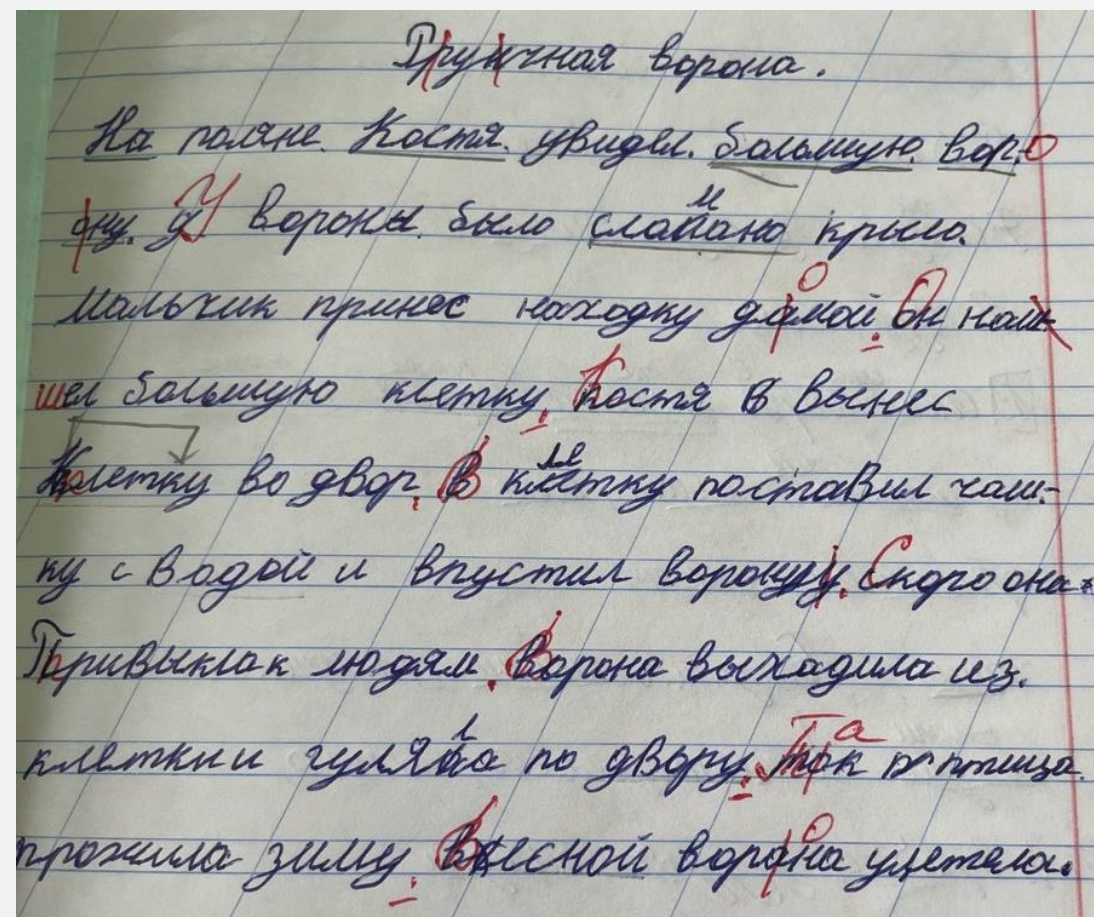 Пручная ворона.
На поляне. Костя. увидел. большую. вор-о
ону. У вороны. было сламано крыло.
Мальчик принес находку домой. Он наш
шел большую клетку. Костя в вынес
Клетку во двор. В клетку поставил чаш-
ку с водой и впустил ворону. Скоро она.
Привыкла к людям. Ворона выходила из.
клетки и гуляла по двору. Так п птица.
прожила зиму. Весной ворона улетела.